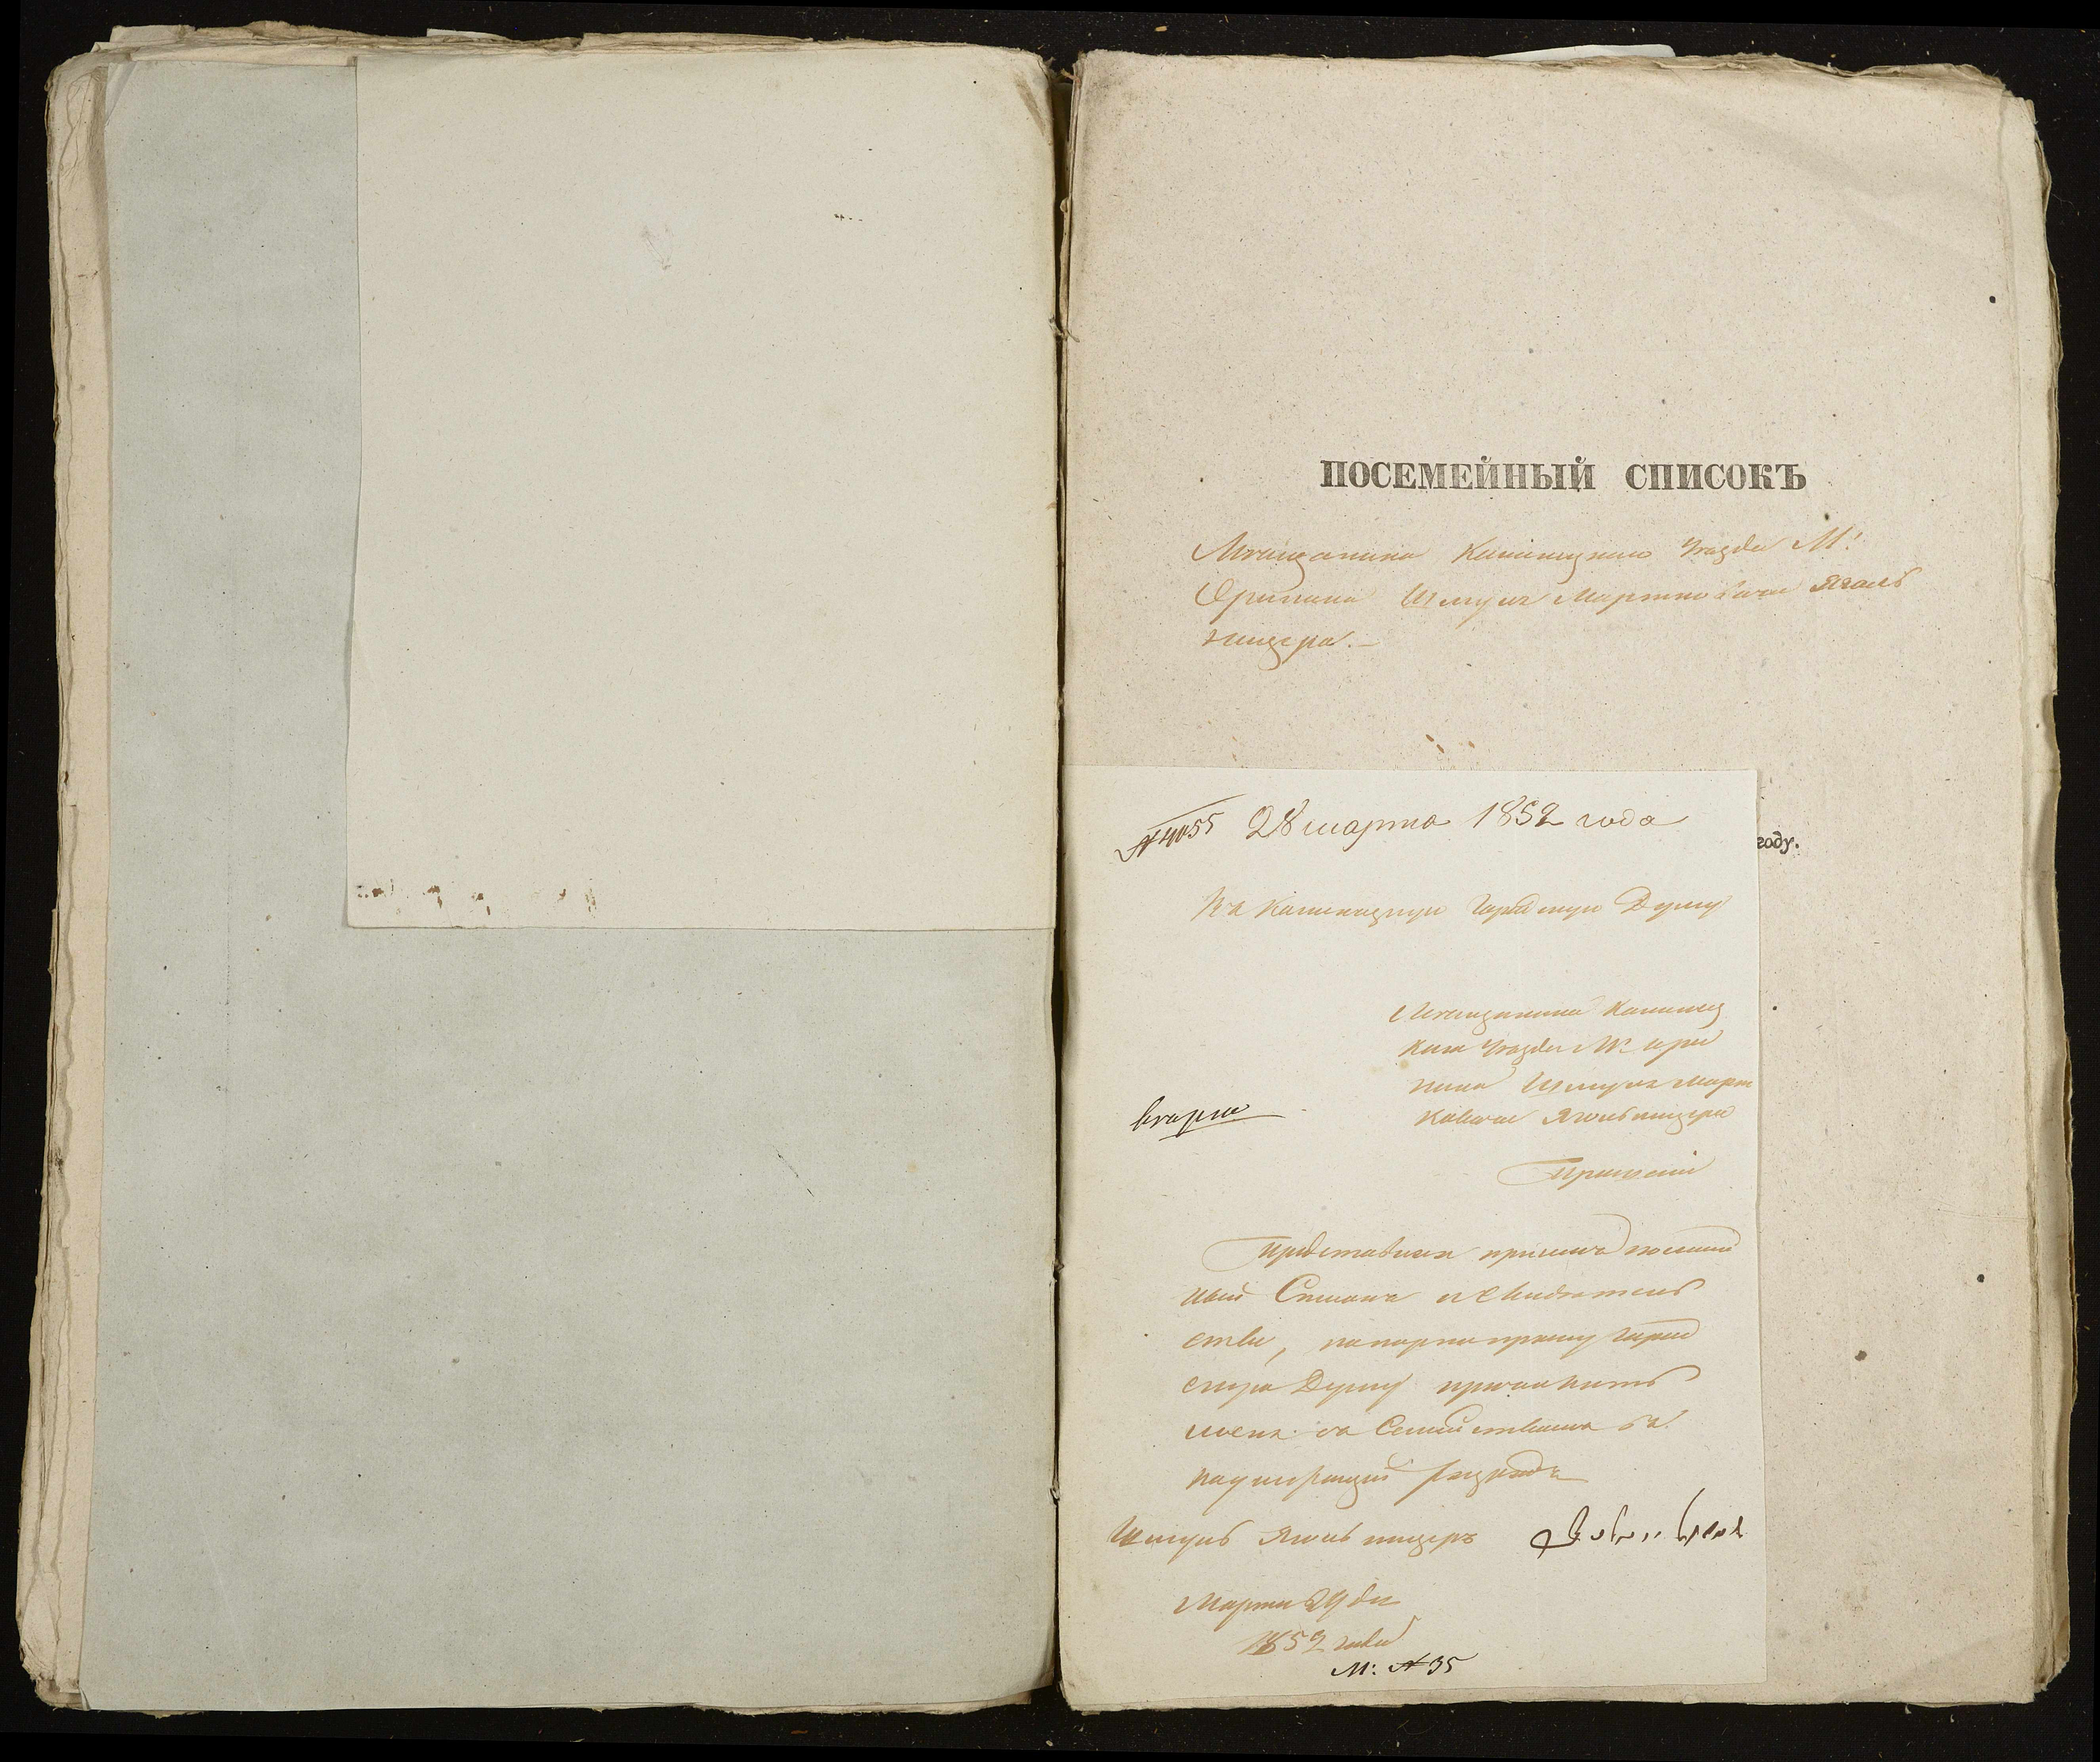 ПОСЕМЕЙНЫЙ СПИСОКЪ
Мѣщанина Каменецкаго Уѣзда М:
Оринина Шмуля Мартковича Ягель
ницера.—
году.
28 марта 1852 года
Въ Каменецкую Городскую Думу
Мѣщанина Каменец
каго Уѣзда М: Ори
нина Шмуля Март
ковича Ягельницера
Прошеніе
Представляя при семъ посемей
ный Списокъ и свидѣтель
ства, покорно прошу Город
скую Думу причислить
меня съ Семействомъ въ
Шмуль Ягельницеръ
Марта 29 дня
1852 года
М: № 35